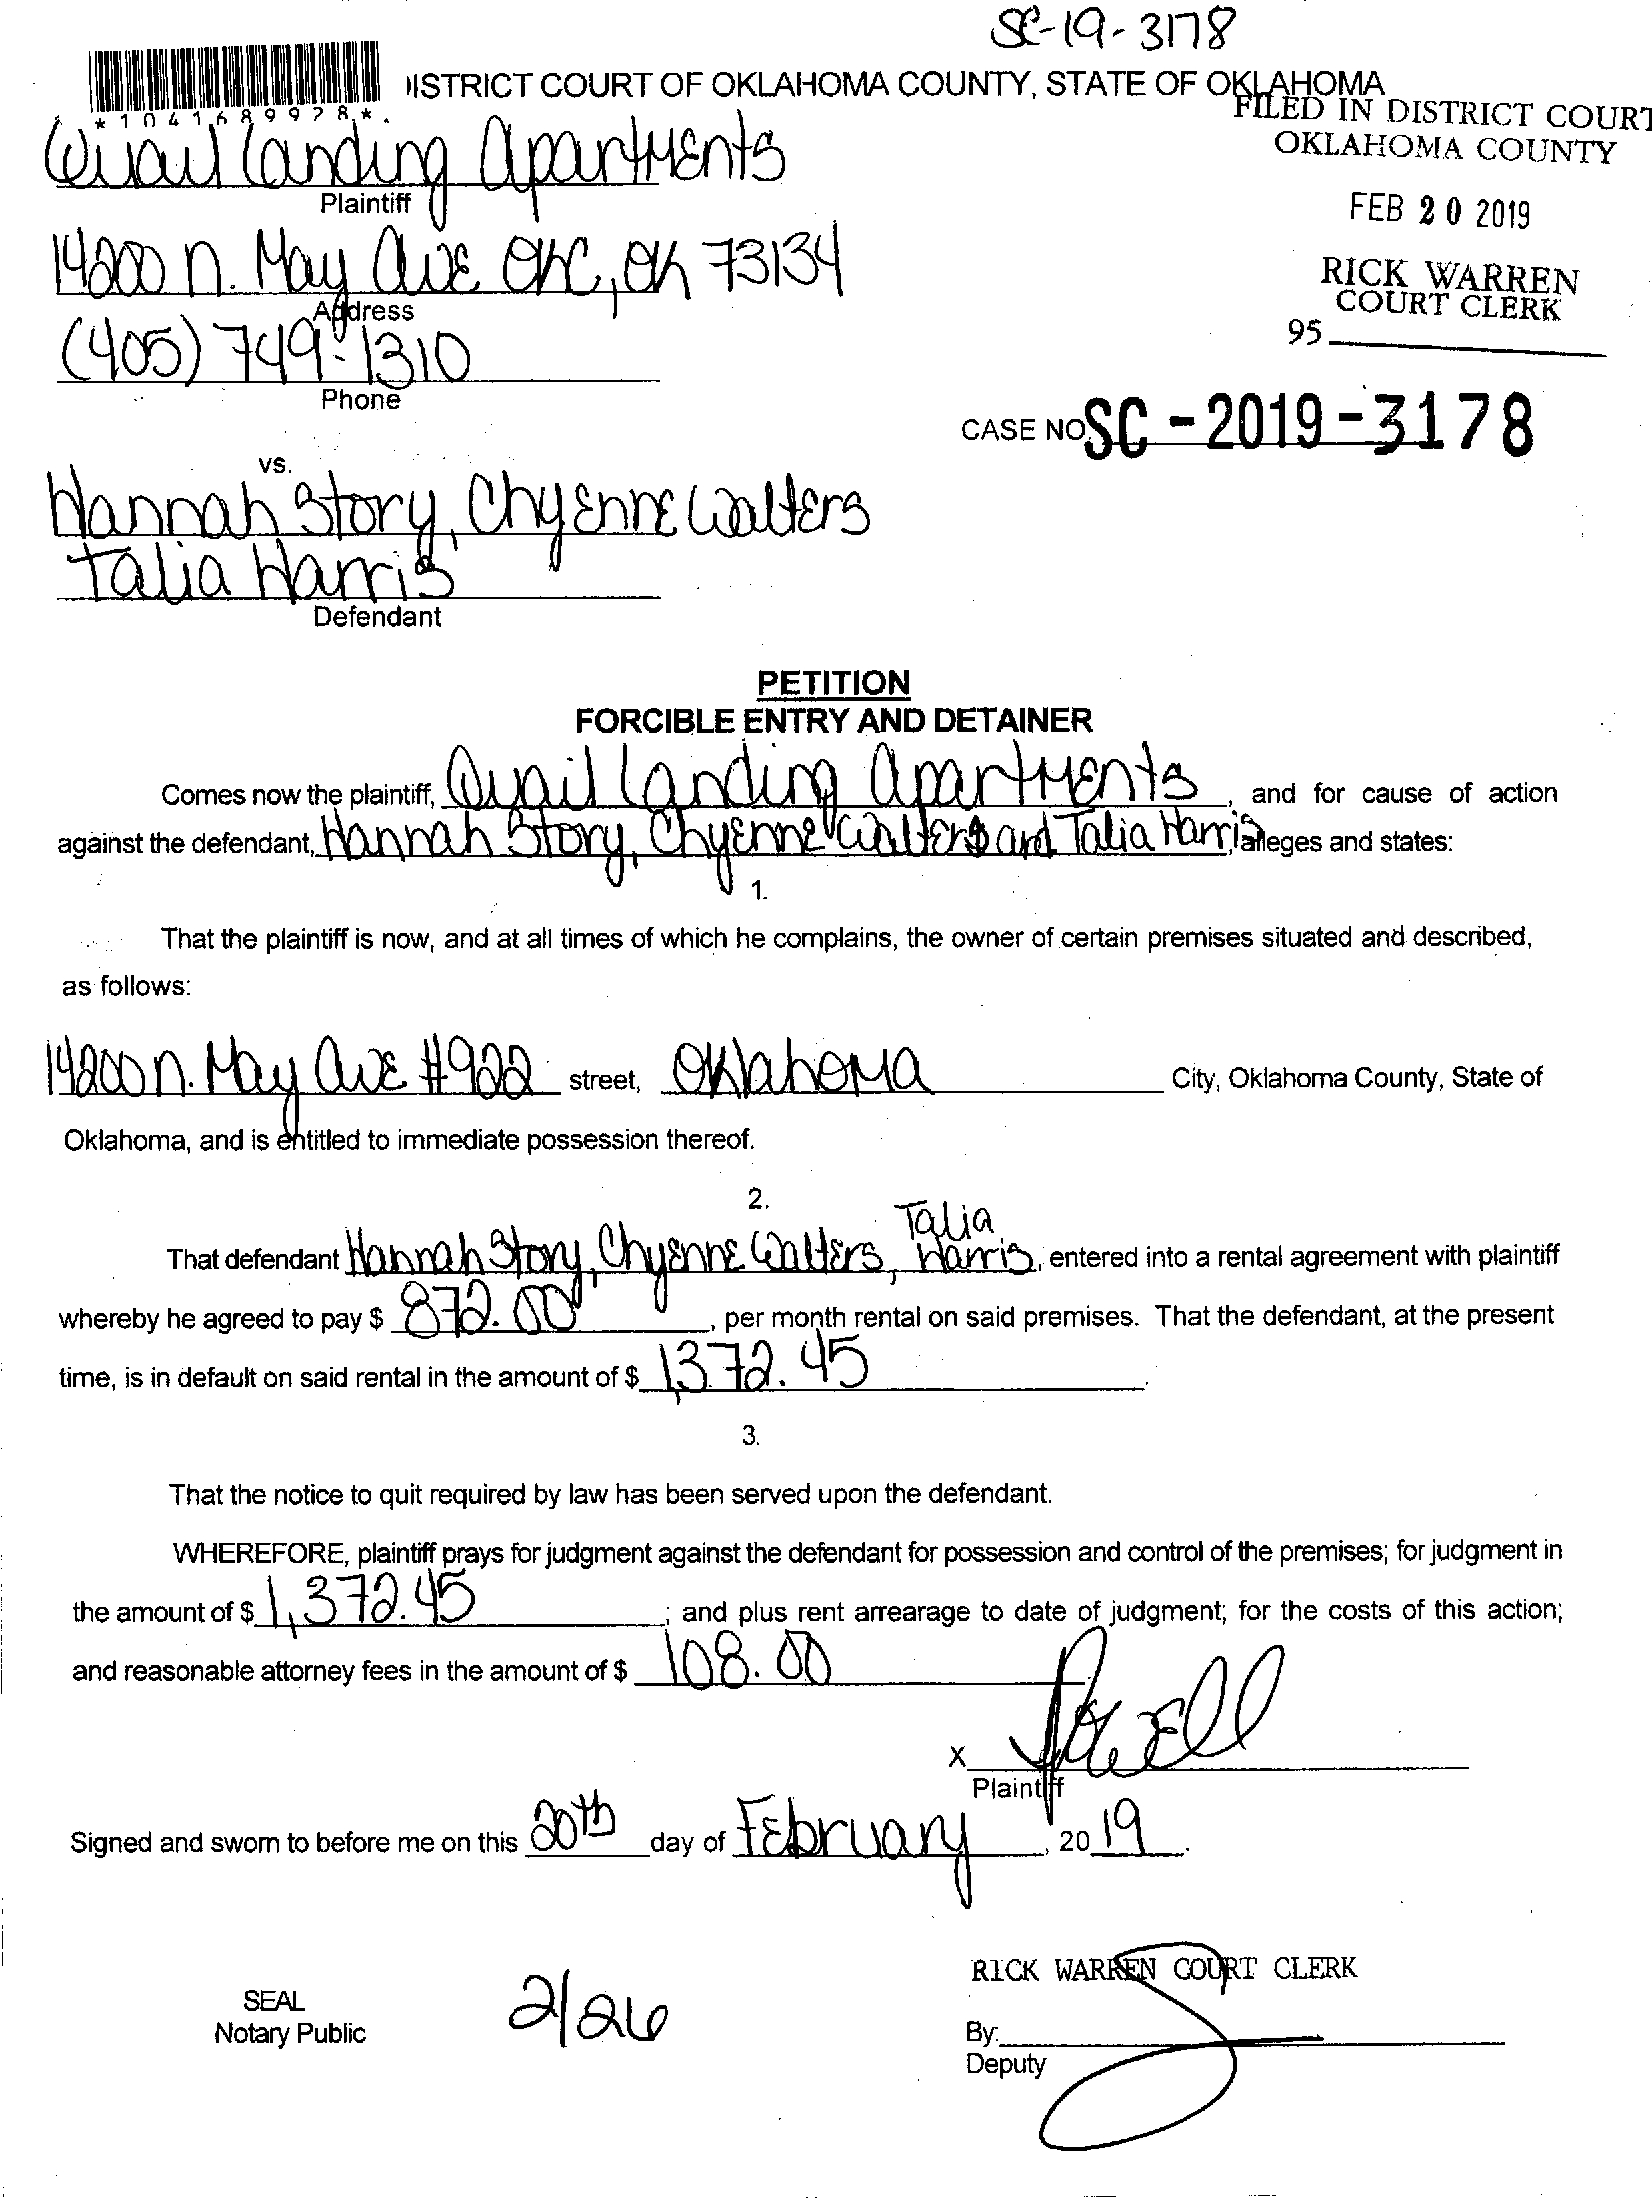 SC-19-3178
DISTRICT COURT OF OKLAHOMA COUNTY, STATE OF OKLAHOMA
*1041689978*
FILED IN DISTRICT COURT
OKLAHOMA COUNTY
Quail Landing Apartments
Plaintiff
FEB 20 2019
14200 N. May Ave OKC, OK 73134
Address
RICK WARREN
COURT CLERK
95
(405) 749-1310
Phone
CASE NO. SC-2019-3178
vs.
Hannah Story, Chyenne Walters
Talia Harris
Defendant
PETITION
FORCIBLE ENTRY AND DETAINER
Comes now the plaintiff, Quail Landing Apartments, and for cause of action
against the defendant, Hannah Story, Chyenne Walters and Talia Harris, alleges and states:
1.
That the plaintiff is now, and at all times of which he complains, the owner of certain premises situated and described,
as follows:
14200 N. May Ave #922 street, Oklahoma City, Oklahoma County, State of
Oklahoma, and is entitled to immediate possession thereof.
2.
That defendant Hannah Story, Chyenne Walters, Talia Harris, entered into a rental agreement with plaintiff
whereby he agreed to pay $ 872.00, per month rental on said premises. That the defendant, at the present
time, is in default on said rental in the amount of $ 1,372.45.
3.
That the notice to quit required by law has been served upon the defendant.
WHEREFORE, plaintiff prays for judgment against the defendant for possession and control of the premises; for judgment in
the amount of $ 1,372.45; and plus rent arrearage to date of judgment; for the costs of this action;
and reasonable attorney fees in the amount of $ 108.00
X
Plaintiff
Signed and sworn to before me on this 20th day of February, 2019.
RICK WARREN COURT CLERK
SEAL
Notary Public
2/26
By:
Deputy